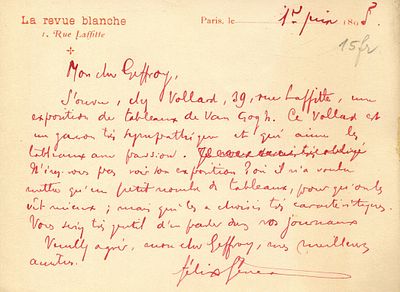 La revue blanche
1, Rue Laffitte
Paris, le 1er juin 1895.
15 fr
Mon cher Geffroy,
S'ouvre, chez Vollard, 39, rue Laffitte, une
exposition de tableaux de Van Gogh. Ce Vollard est
un garçon très sympathique et qui aime les
tableaux avec passion.
N'irez-vous pas voir son exposition ? où il n'a voulu
mettre qu'un petit nombre de tableaux, pour qu'on les
vît mieux ; mais qu'il a choisis très caractéristiques.
Vous seriez très gentil d'en parler dans vos journaux
Veuillez agréer, mon cher Geffroy, mes meilleures
amitiés.
félix fénéon